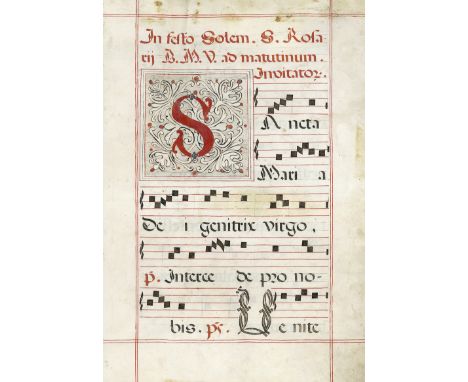 In festo Solem. S. Rosa
rij B. M. V. ad matutinum.
Invitator.
S Ancta
Maria
De i genitrix virgo,
p. Interce de pro no-
bis. ps. Ve nite